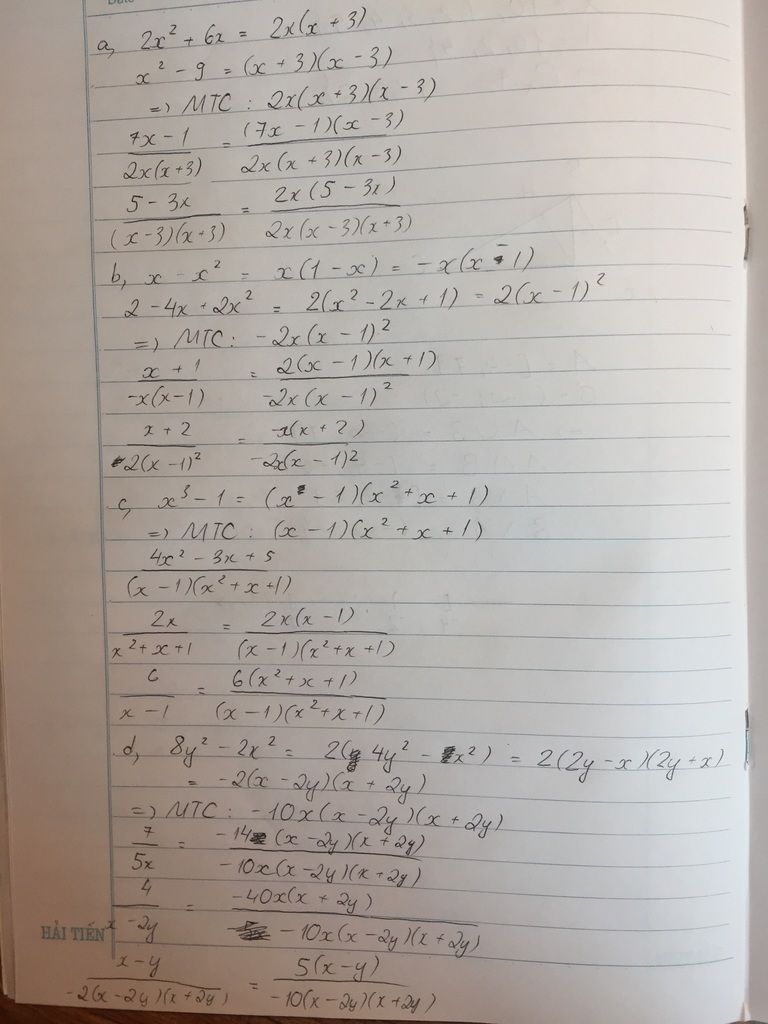 a, 2x² + 6x = 2x(x + 3)
x² - 9 = (x + 3)(x - 3)
=> MTC : 2x(x + 3)(x - 3)
(7x - 1)/(2x(x+3)) = ((7x - 1)(x - 3))/(2x(x + 3)(x - 3))
(5 - 3x)/((x - 3)(x + 3)) = (2x(5 - 3x))/(2x(x - 3)(x + 3))
b, x - x² = x(1 - x) = -x(x - 1)
2 - 4x + 2x² = 2(x² - 2x + 1) = 2(x - 1)²
=> MTC : -2x(x - 1)²
(x + 1)/(-x(x-1)) = (2(x - 1)(x + 1))/(-2x(x - 1)²)
(x + 2)/(2(x - 1)²) = (-x(x + 2))/(-2x(x - 1)²)
c, x³ - 1 = (x - 1)(x² + x + 1)
=> MTC : (x - 1)(x² + x + 1)
(4x² - 3x + 5)/((x - 1)(x² + x + 1))
(2x)/(x² + x + 1) = (2x(x - 1))/((x - 1)(x² + x + 1))
6/(x - 1) = (6(x² + x + 1))/((x - 1)(x² + x + 1))
d, 8y² - 2x² = 2(4y² - x²) = 2(2y - x)(2y + x)
= -2(x - 2y)(x + 2y)
=> MTC : -10x(x - 2y)(x + 2y)
7/(5x) = (-14(x - 2y)(x + 2y))/(-10x(x - 2y)(x + 2y))
4/(x - 2y) = (-40x(x + 2y))/(-10x(x - 2y)(x + 2y))
HẢI TIẾN
(x - y)/(-2(x - 2y)(x + 2y)) = (5(x - y))/(-10(x - 2y)(x + 2y))